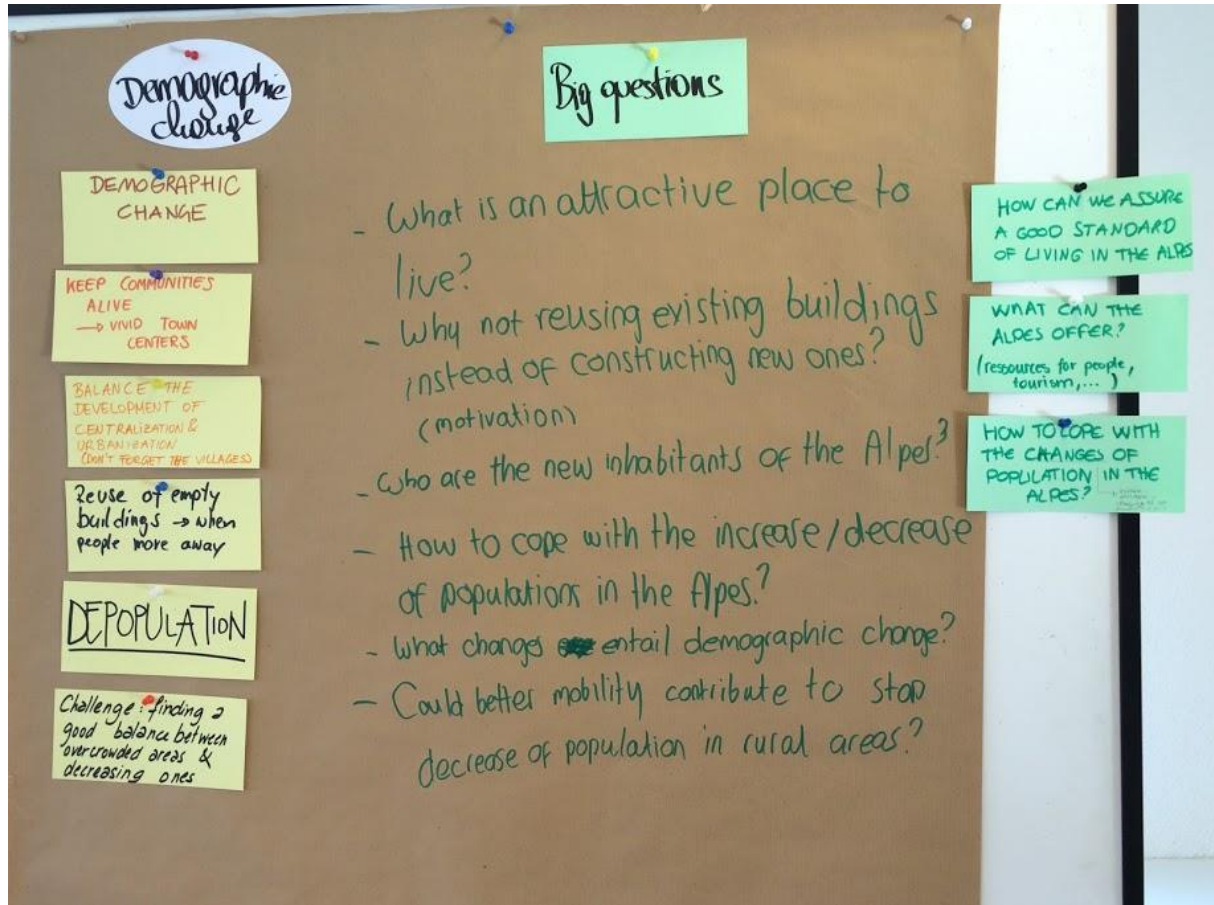 Demographic
change
DEMOGRAPHIC
CHANGE
KEEP COMMUNITIES
ALIVE
→ VIVID TOWN
CENTERS
BALANCE THE
DEVELOPMENT OF
CENTRALIZATION &
URBANIZATION
(DON'T FORGET THE VILLAGES)
Reuse of empty
buildings → when
people move away
DEPOPULATION
Challenge: finding a
good balance between
overcrowded areas &
decreasing ones
Big questions
- What is an attractive place to
live?
- Why not reusing existing buildings
instead of constructing new ones?
(motivation)
- Who are the new inhabitants of the Alpes?
- How to cope with the increase/decrease
of populations in the Alpes?
- What changes entail demographic change?
- Could better mobility contribute to stop
decrease of population in rural areas?
HOW CAN WE ASSURE
A GOOD STANDARD
OF LIVING IN THE ALPS
WHAT CAN THE
ALPES OFFER?
(ressources for people,
tourism,...)
HOW TO COPE WITH
THE CHANGES OF
POPULATION IN THE
ALPES?